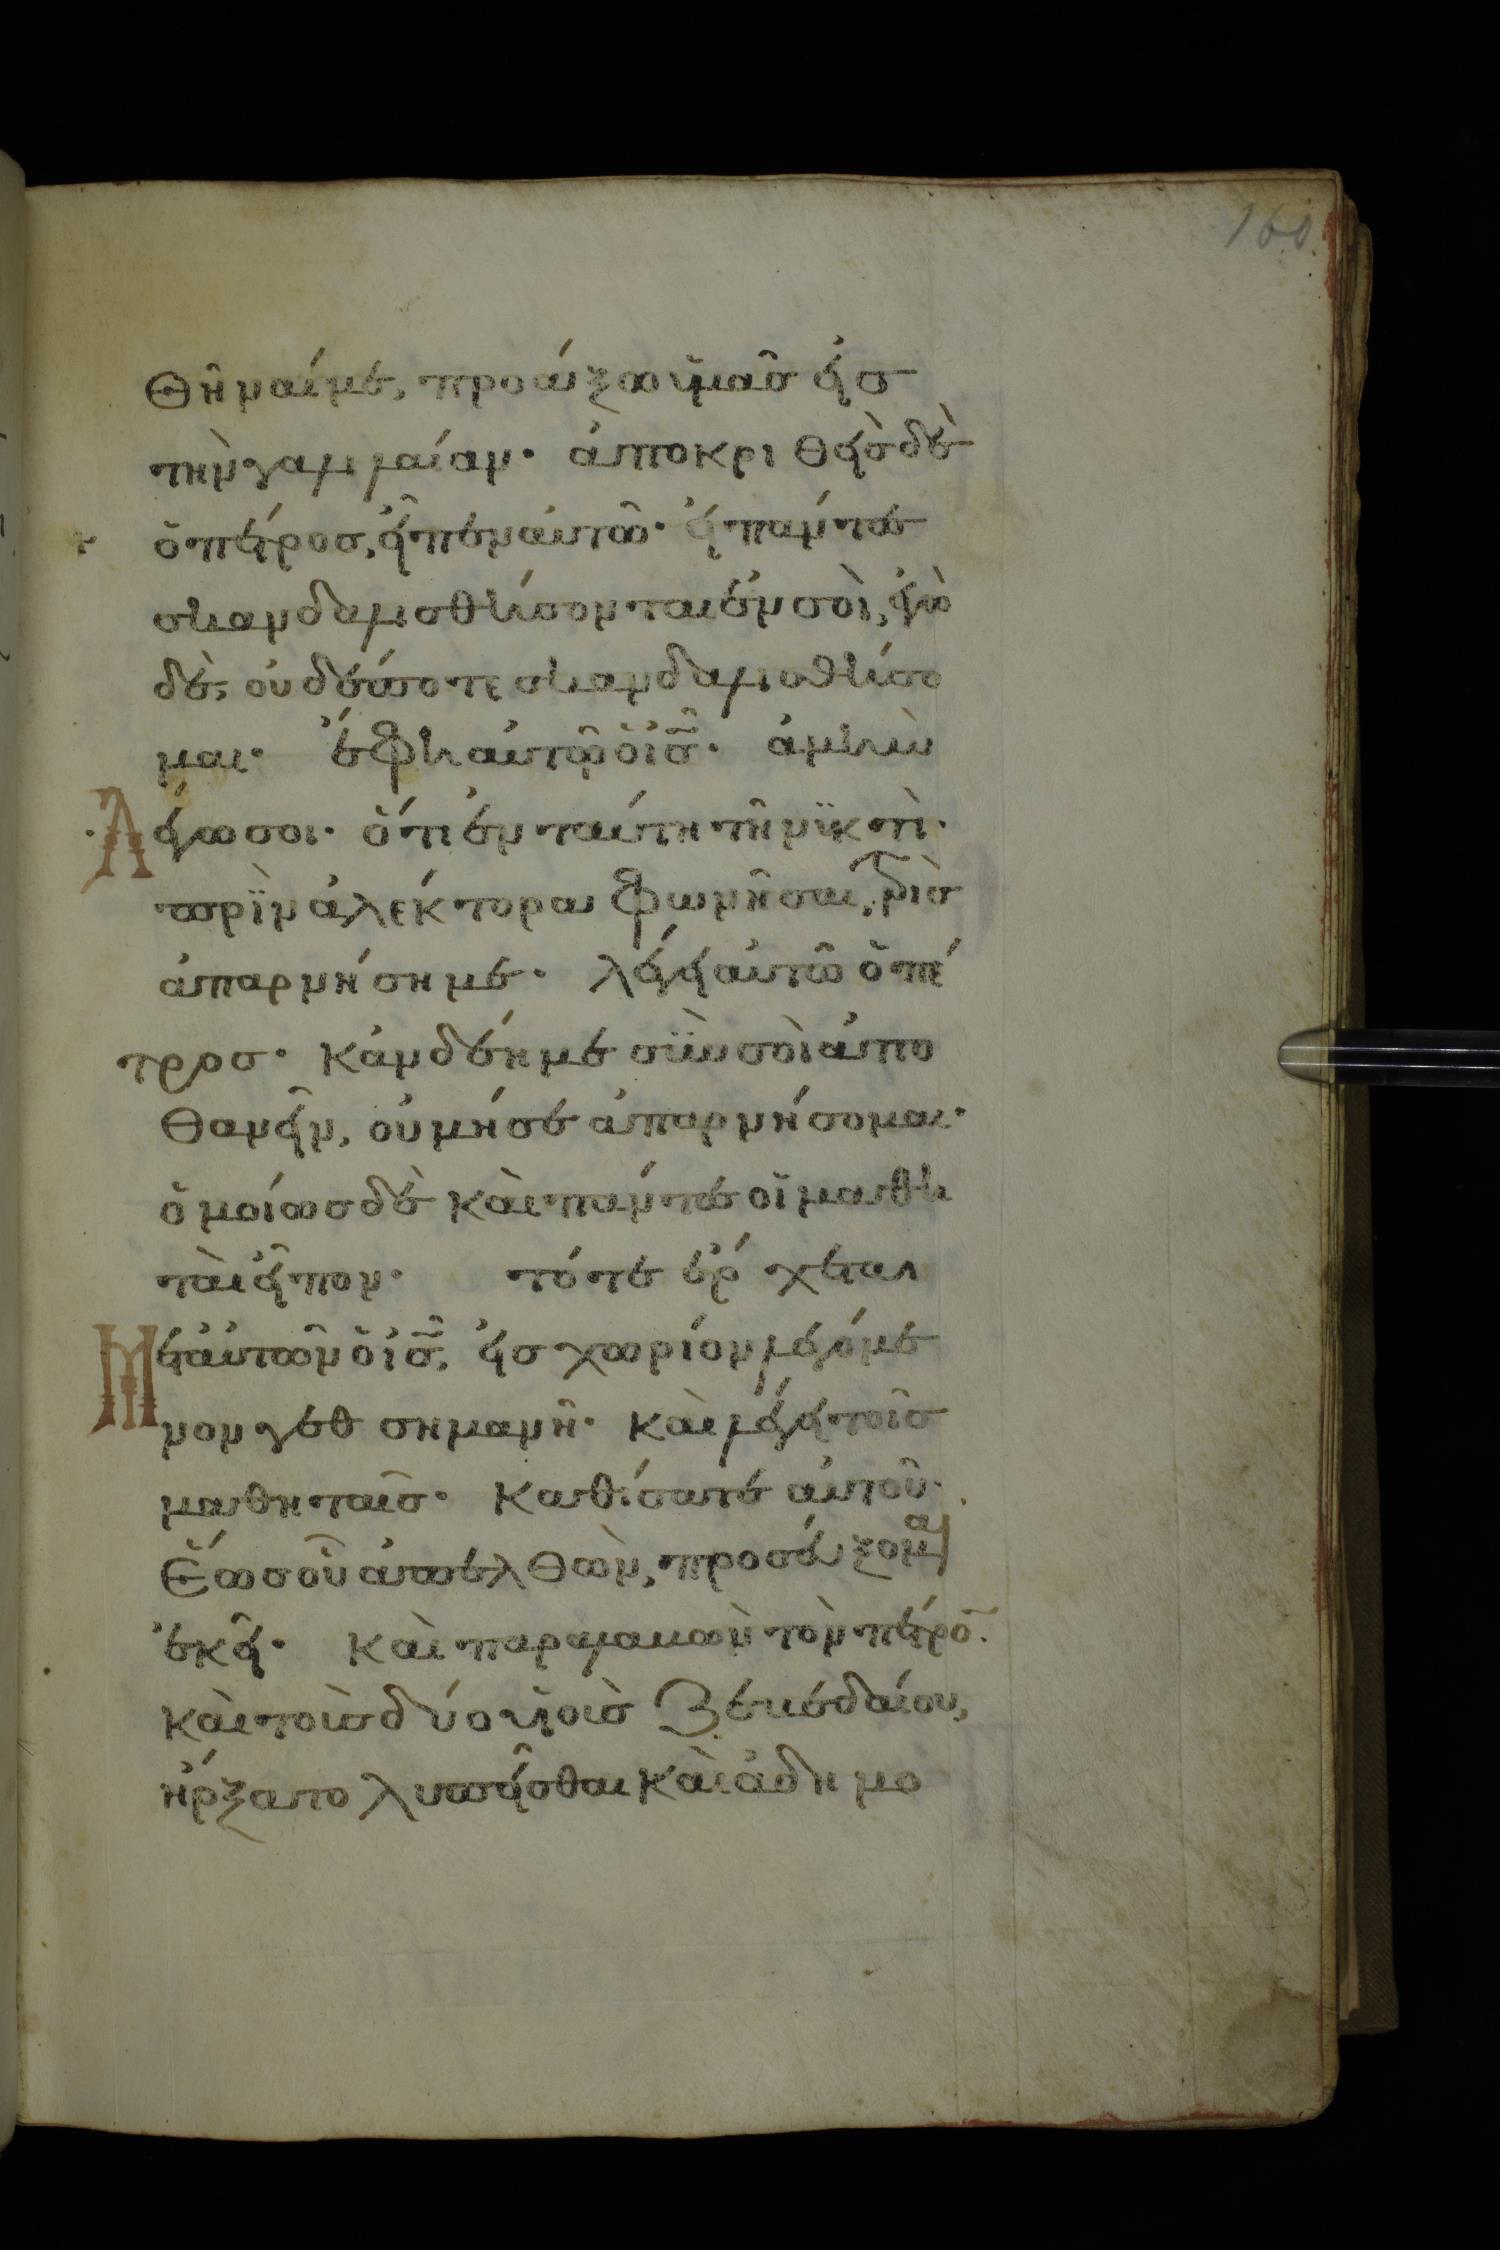 160
θῆναί με, προάξω ὑμᾶσ εἰσ
τὴν γαλιλαίαν· ἀποκριθεὶσ δὲ
ὁ πέτροσ, εἶπεν αὐτῶ· εἰ πάντεσ
σκανδαλισθήσονται ἐν σοὶ, ἐγὼ
δὲ, οὐδέποτε σκανδαλισθήσο
μαι· ἔφη αὐτῶ ὁ ισ̅· ἀμὴν
λέγω σοι· ὅτι ἐν ταύτη τῆ νϋκτὶ·
πρϊν ἀλέκτορα φωνῆσαι, τρὶσ
ἀπαρνήση με· λέγει αὐτῶ ὁ πέ
τροσ· κἀν δέη με σϋν σοὶ ἀπο
θανεῖν, οὐ μή σε ἀπαρνήσομαι·
ὁμοίωσ δὲ καὶ πάντεσ οἱ μαθη
ταὶ εἶπον· τότε ἔρχεται
μετ αὐτῶν ὁ ισ̅, εἰσ χωρίον λεγόμε
νον γεθσημανῆ· καὶ λέγει τοῖσ
μαθηταῖσ· καθίσατε αὐτοῦ·
ἕωσ οὗ ἀπελθὼν, προσεύξομαι
ἐκεῖ· καὶ παραλαβὼν τὸν πέτρο̅·
καὶ τοὺσ δύο υἱοὺσ ζεβεδαίου,
ἤρξατο λυπεῖσθαι καὶ ἀδημο